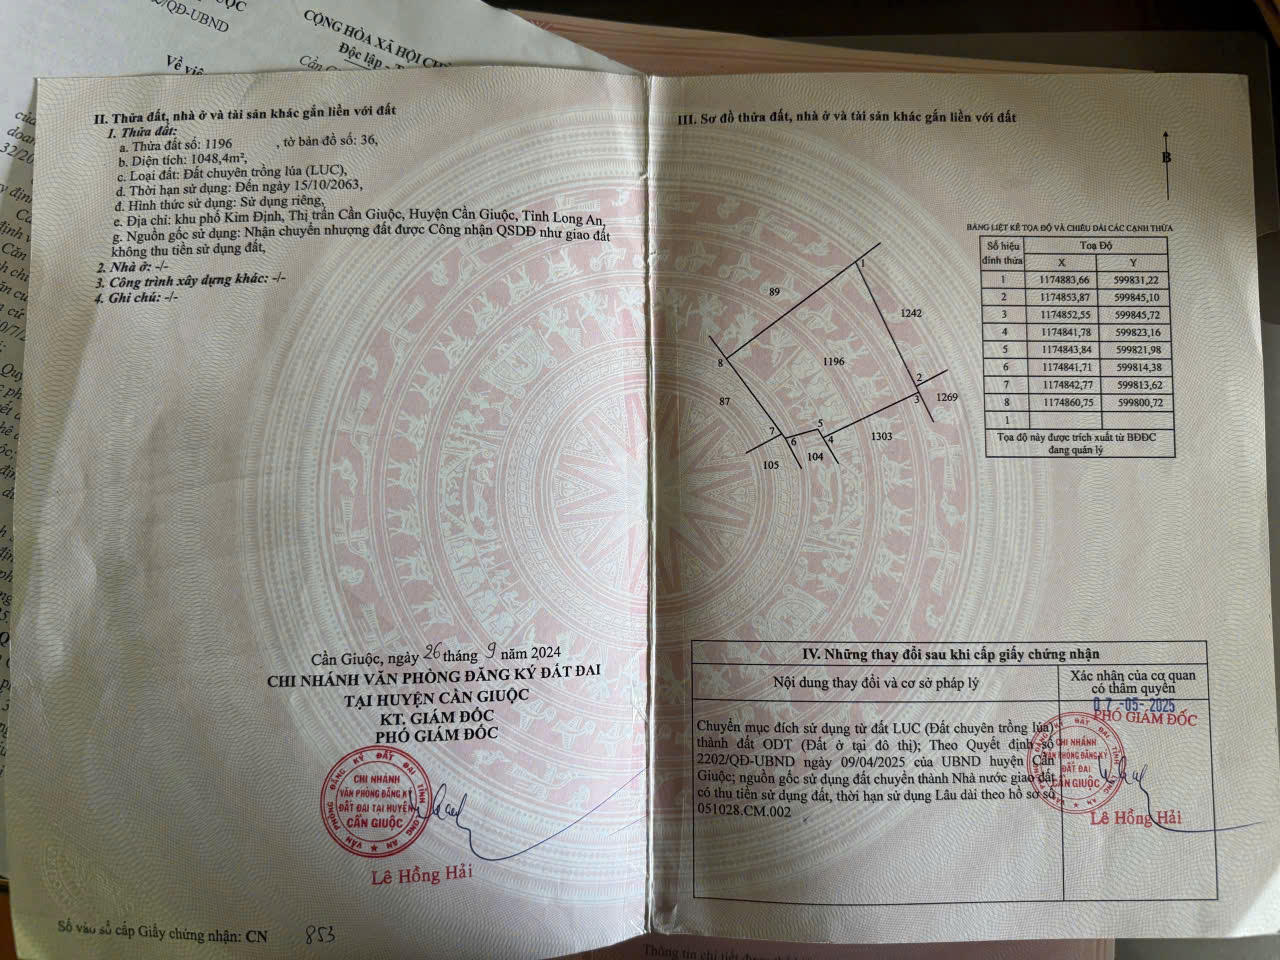 /QĐ-UBND
CỘNG HÒA XÃ HỘI CH
Độc lập - T
Về việ
II. Thửa đất, nhà ở và tài sản khác gắn liền với đất
1. Thửa đất:
a. Thửa đất số: 1196 , tờ bản đồ số: 36,
b. Diện tích: 1048,4m²,
c. Loại đất: Đất chuyên trồng lúa (LUC),
d. Thời hạn sử dụng: Đến ngày 15/10/2063,
đ. Hình thức sử dụng: Sử dụng riêng,
e. Địa chỉ: khu phố Kim Định, Thị trấn Cần Giuộc, Huyện Cần Giuộc, Tỉnh Long An,
g. Nguồn gốc sử dụng: Nhận chuyển nhượng đất được Công nhận QSDĐ như giao đất
không thu tiền sử dụng đất,
2. Nhà ở: -/-
3. Công trình xây dựng khác: -/-
4. Ghi chú: -/-
Cần Giuộc, ngày 26 tháng 9 năm 2024
CHI NHÁNH VĂN PHÒNG ĐĂNG KÝ ĐẤT ĐAI
TẠI HUYỆN CẦN GIUỘC
KT. GIÁM ĐỐC
PHÓ GIÁM ĐỐC
VĂN PHÒNG ĐĂNG KÝ ĐẤT ĐAI TỈNH LONG AN
CHI NHÁNH
VĂN PHÒNG ĐĂNG KÝ
ĐẤT ĐAI TẠI HUYỆN
CẦN GIUỘC
Lê Hồng Hải
Số vào sổ cấp Giấy chứng nhận: CN 853
III. Sơ đồ thửa đất, nhà ở và tài sản khác gắn liền với đất
B
1
89
1242
1196
8
2
3
1269
87
7
6
5
4
1303
104
105
BẢNG LIỆT KÊ TỌA ĐỘ VÀ CHIỀU DÀI CÁC CẠNH THỬA
Số hiệu đỉnh thửa Toạ Độ
X Y
1 1174883,66 599831,22
2 1174853,87 599845,10
3 1174852,55 599845,72
4 1174841,78 599823,16
5 1174843,84 599821,98
6 1174841,71 599814,38
7 1174842,77 599813,62
8 1174860,75 599800,72
1
Tọa độ này được trích xuất từ BĐĐC
đang quản lý
IV. Những thay đổi sau khi cấp giấy chứng nhận
Nội dung thay đổi và cơ sở pháp lý
Xác nhận của cơ quan
có thẩm quyền
Chuyển mục đích sử dụng từ đất LUC (Đất chuyên trồng lúa)
thành đất ODT (Đất ở tại đô thị); Theo Quyết định số
2202/QĐ-UBND ngày 09/04/2025 của UBND huyện Cần
Giuộc; nguồn gốc sử dụng đất chuyển thành Nhà nước giao đất
có thu tiền sử dụng đất, thời hạn sử dụng Lâu dài theo hồ sơ số
051028.CM.002
07-05-2025
PHÓ GIÁM ĐỐC
CHI NHÁNH
CẦN GIUỘC
Lê Hồng Hải